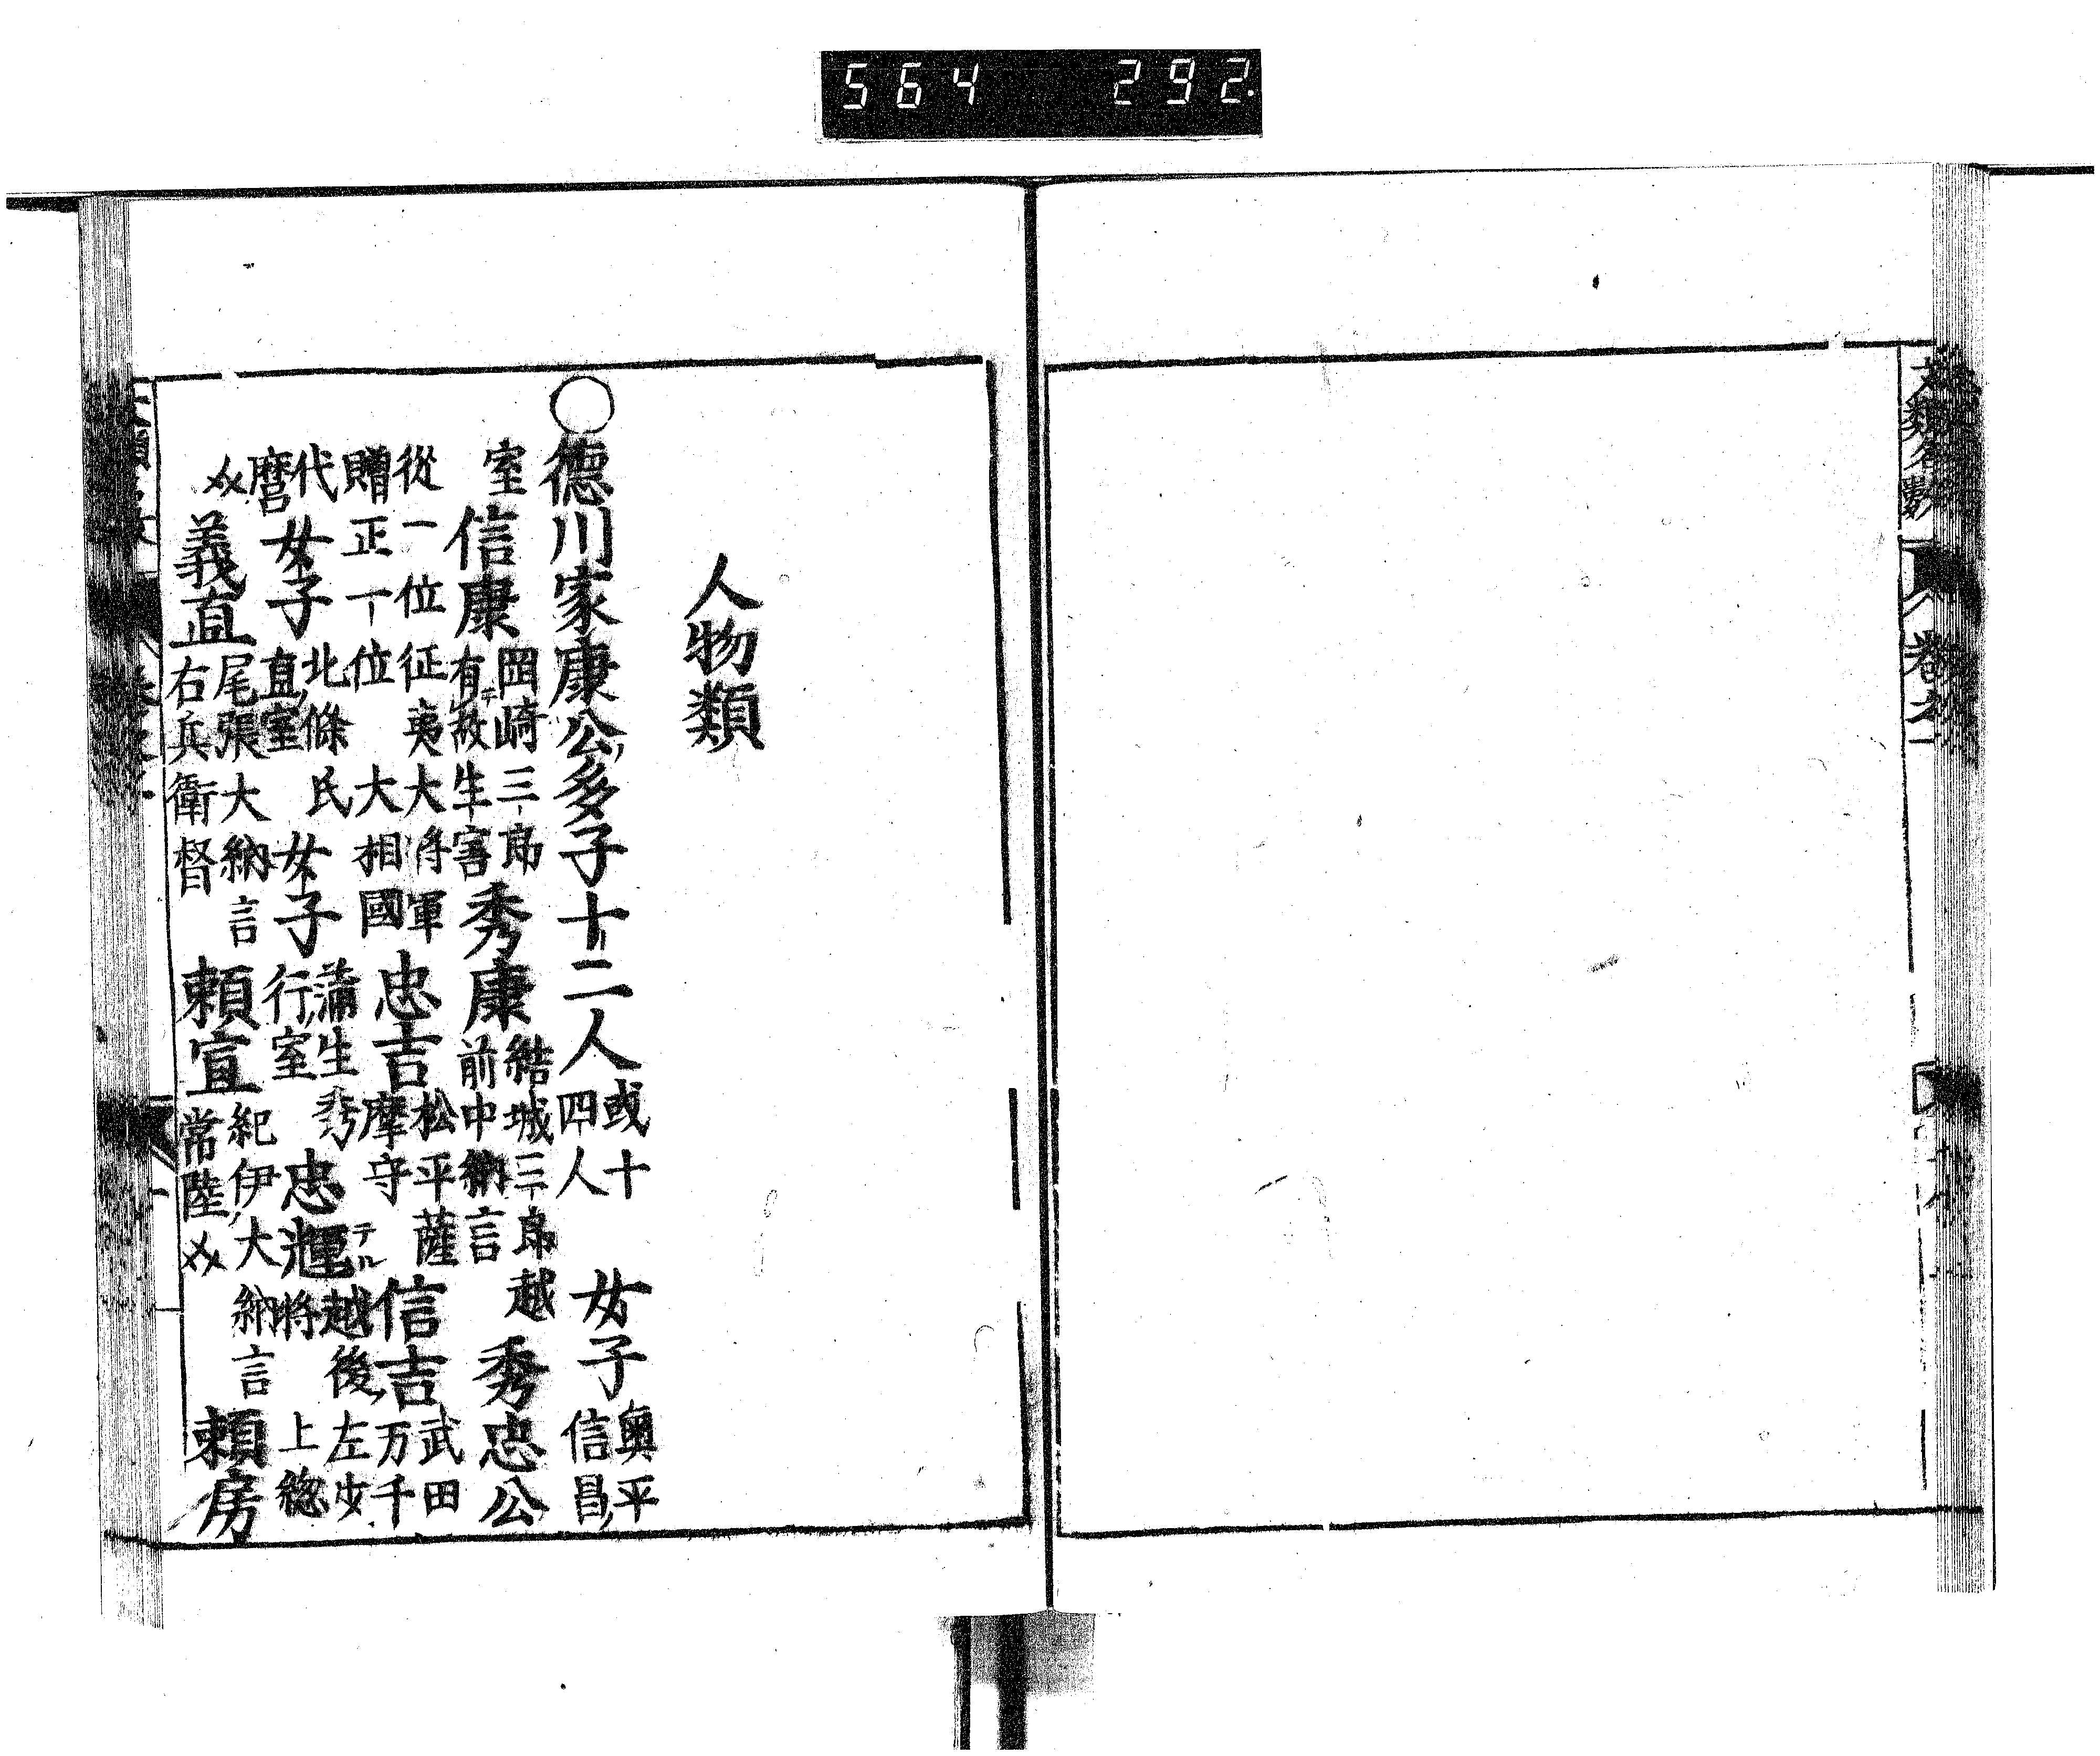 564 292.
人物類
○德川家康公多子十二人 或十四人 女子 奧平信昌
室 信康 岡崎三郎有故生害 秀康 結城三郎越前中納言 秀忠公
從一位征夷大將軍贈正一位大相國 忠吉 松平薩摩守 信吉 武田万千
代麿 女子 北條氏直室 女子 蒲生秀行室 忠輝 テル 越後左少將上總
义 義直 尾張大納言右兵衛督 賴宣 紀伊大納言常陸义 賴房